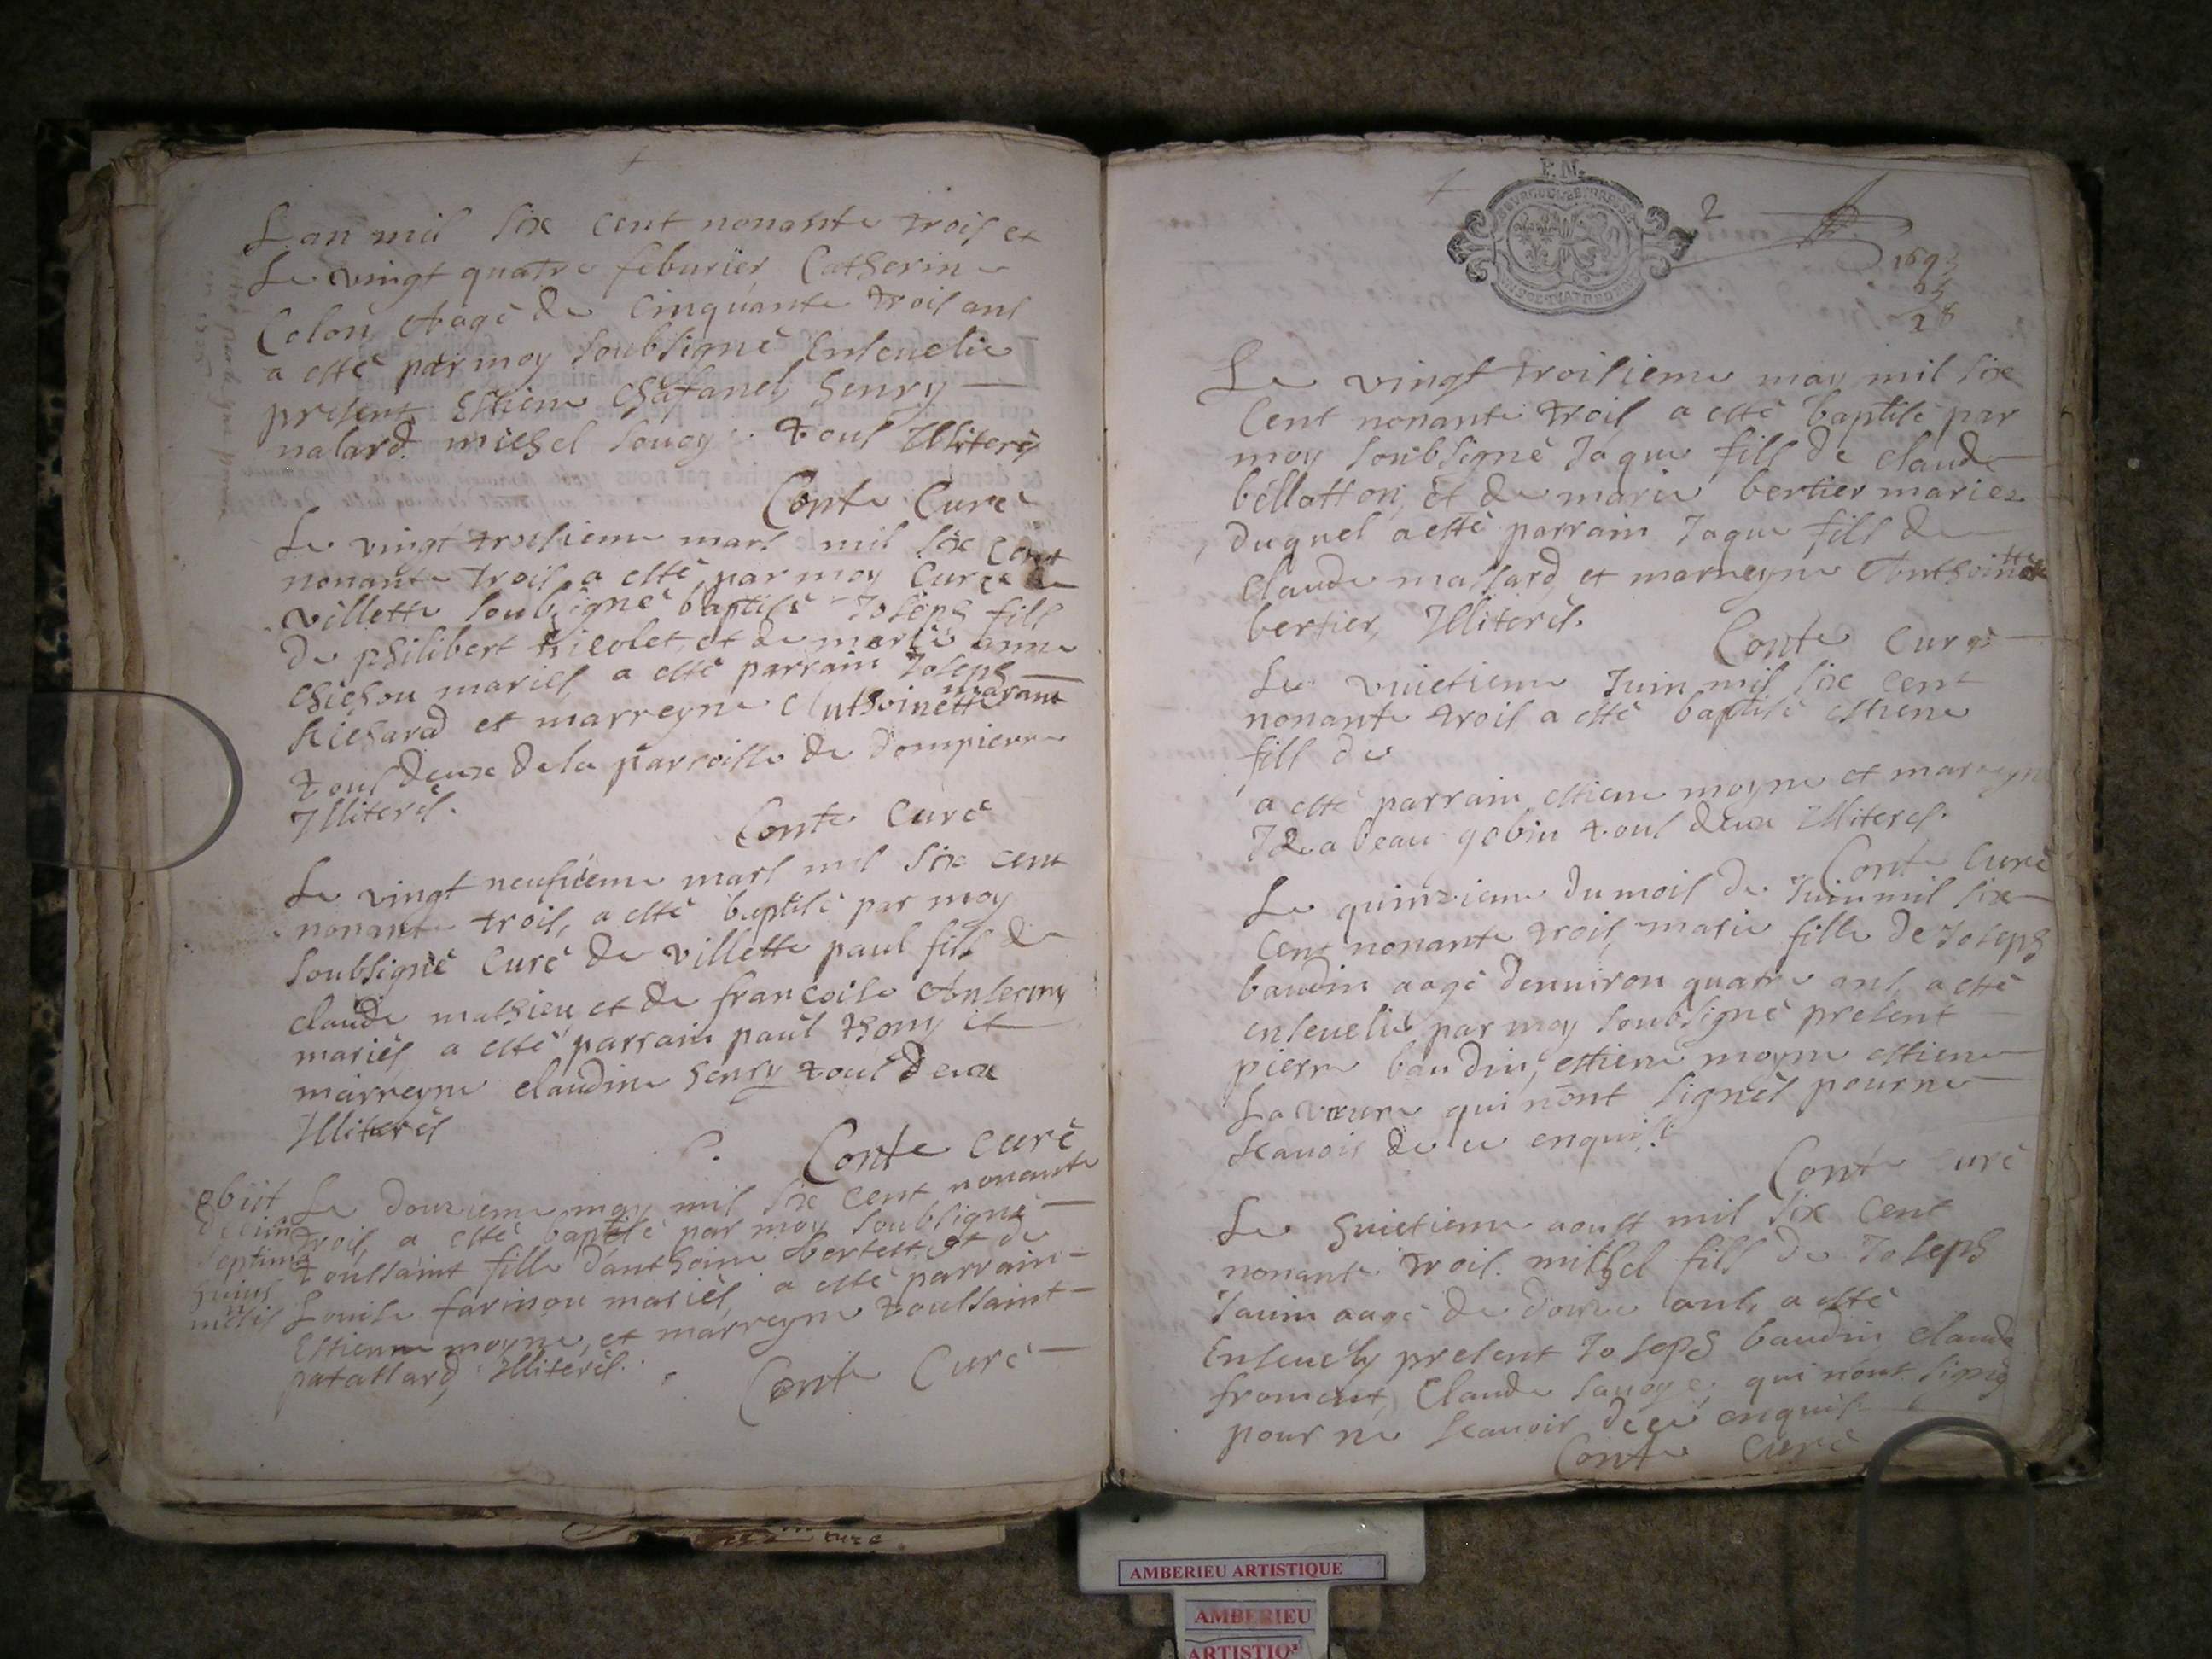 L'an mil six cent nonante trois et
Le vingt quatre feburier Catherine
Colon Aagé de Cinquante trois ans
a esté par moy soubsigné Enseuelie
present Estiene Chafanel, henry
nalard michel souoy tous Illiterés
Conte Curé
Le vingt troisieme mars mil six Cent
nonante trois a esté par moy Curé de
Villette soubsigné baptisé Joseph fils
de philibert Nicolet, et de marie anne
chichou mariés, a esté parrain Joseph
Richard et marreyne Anthoinette marant
tous deux de la parroisse de Dompierre
Illiterés.
Conte Curé
Le vingt neufuieme mars mil six cent
nonante trois, a esté baptisé par moy
soubsigné Curé de Villette paul fils de
claude mathieu et de francoise
mariés, a esté parrain paul thomy et
marreyne claudine henry tous deux
Illiterés
Conte Curé
obiit
decim
septima
huius
mesis
Le douzieme may mil six cent nonante
trois, a esté baptisé par moy soubsigné
toussaint fille d'anthoine bertet et de
Louise farinou mariés, a esté parrain
Estienne moyne, et marreyne toussaint
patallard, Illiterés.
Conte Curé
F.N.
2
1693
28
Le vingt troisieme may mil six
Cent nonante trois, a esté baptisé par
moy soubsigné Jaque fils de claude
bellatton, et de marie bertier maries
duquel a esté parrain Jaque fils de
claude massard, et marreyne Anthoinette
bertier, Illiterés.
Conte Curé
Le vuictieme Juin mil six cent
nonante trois a esté baptisé estiene
fils de
a esté parrain estiene moyne et marreyne
Isabeau gobin tous deux Illiterés.
Conte Curé
Le quinzieme du mois de Juin mil six
Cent nonante trois, marie fille de Joseph
baudin aagé denuiron quatre ans, a esté
enseuelie par moy soubsigné present
pierre baudin, estiene moyne estiene
qui nont signés pour ne
scauoir de ce enquis
Conte Curé
Le huictieme aoust mil six cent
nonante trois. michel fils de Joseph
Janin aagé de douze ans, a esté
Enseuely present Joseph baudin claude
froment, Claude sauoye, qui nont signé
pour ne scauoir de ce enquis
Conte Curé
AMBERIEU ARTISTIQUE
AMBERIEU
ARTISTIQ